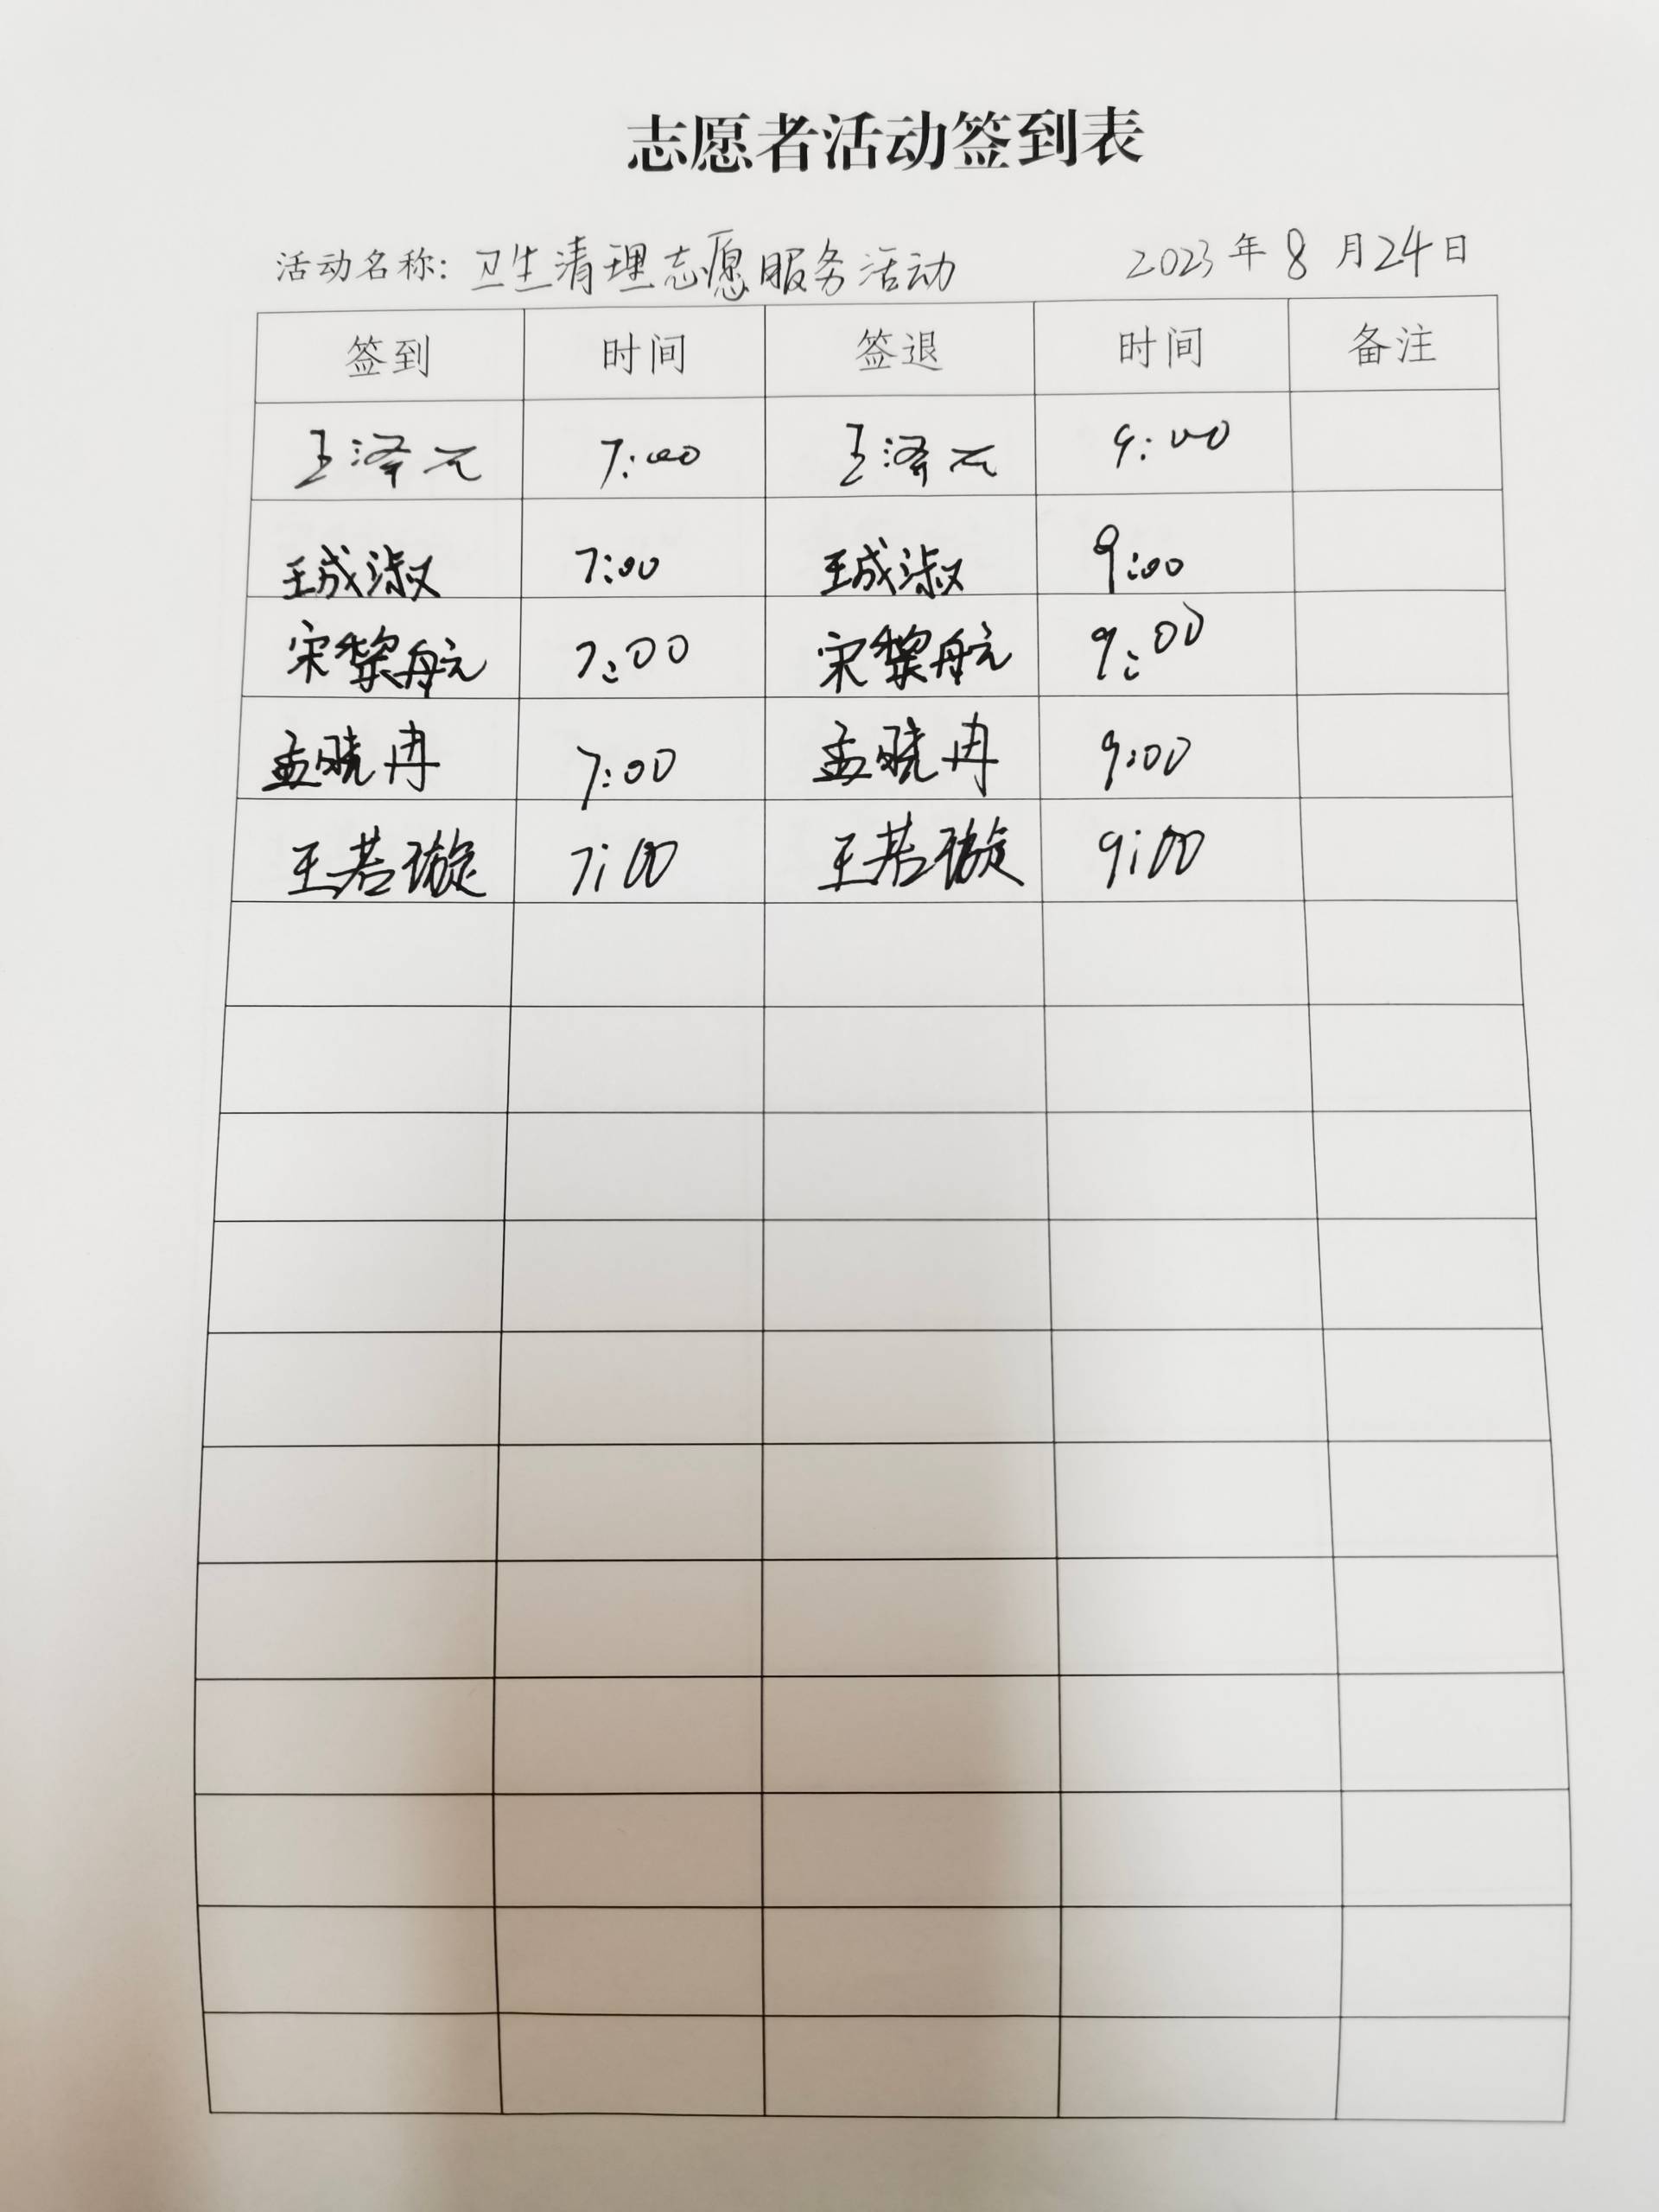 志愿者活动签到表
活动名称: 卫生清理志愿服务活动 2023年8月24日
签到 时间 签退 时间 备注
王泽元 7:00 王泽元 9:00
王成淑 7:00 王成淑 9:00
宋黎航 7:00 宋黎航 9:00
孟晓冉 7:00 孟晓冉 9:00
王若璇 7:00 王若璇 9:00